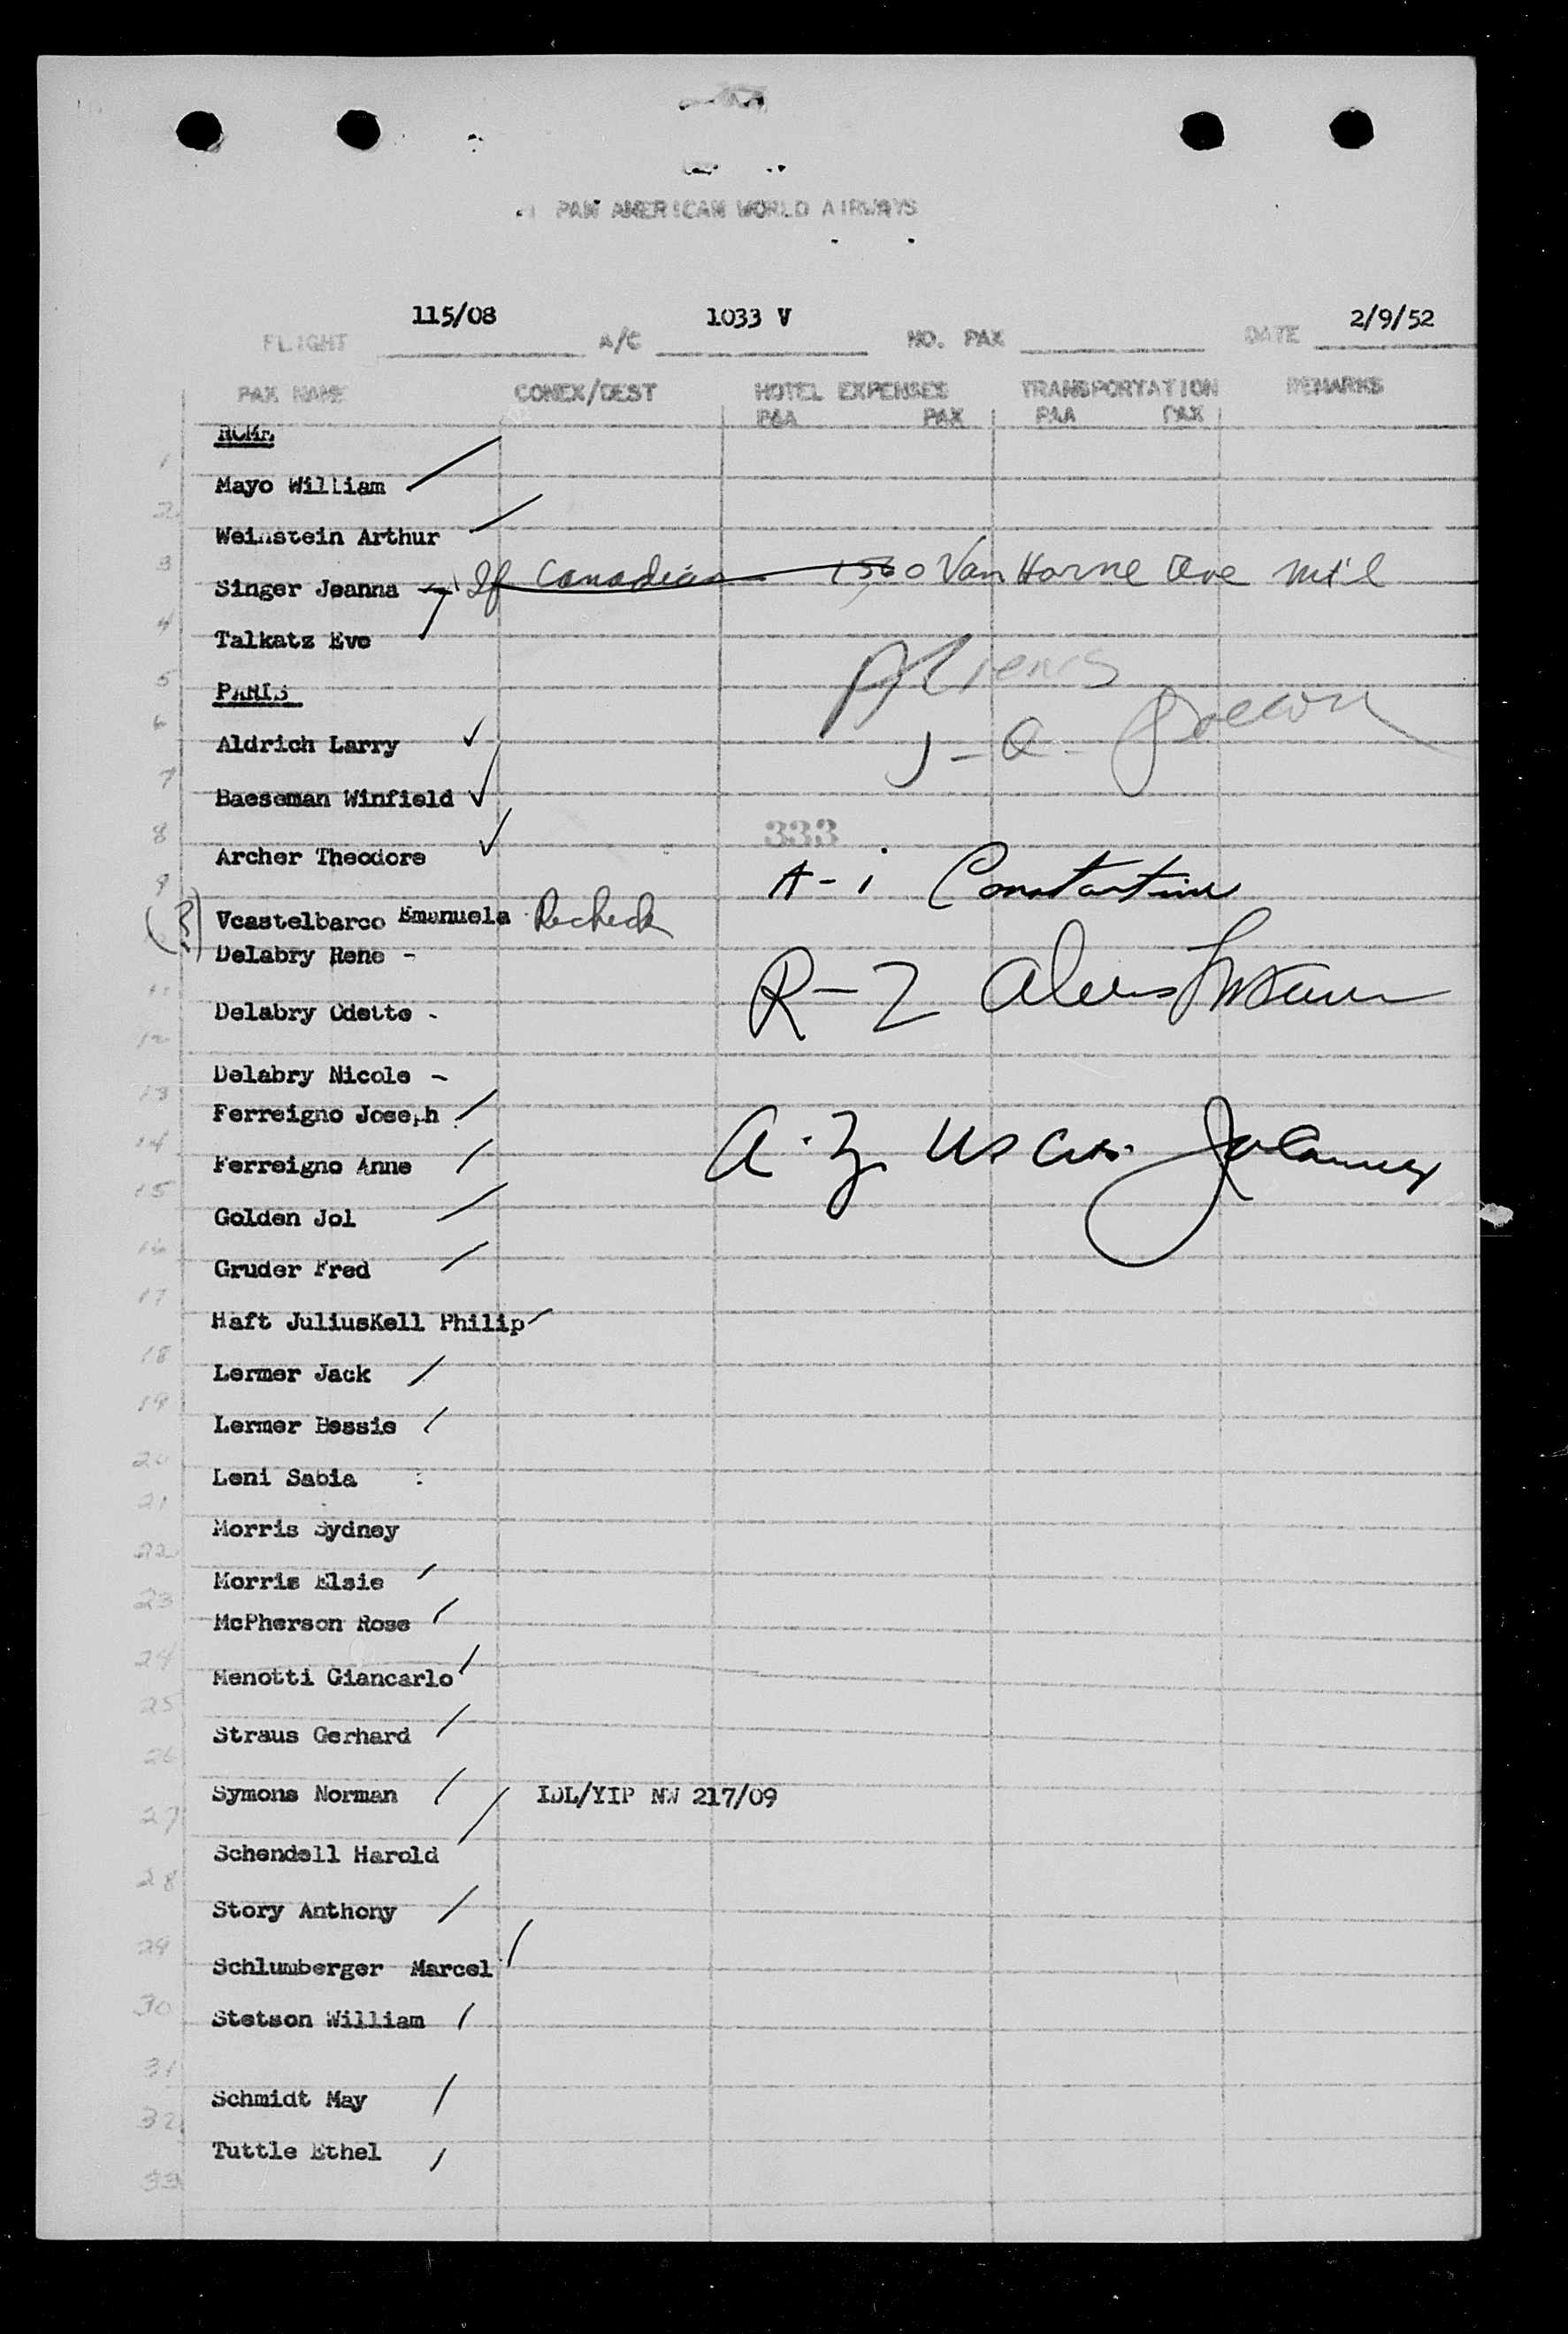 PAN AMERICAN WORLD AIRWAYS
115/08 1033 V 2/9/52
FLIGHT A/C NO. PAX DATE
PAX NAME CONEX/DEST HOTEL EXPENSES TRANSPORTATION REMARKS
PAA PAX PAA PAX
ROME
1
Mayo William
2
Weinstein Arthur
3
Singer Jeanna If Canadian 1560 Van Horne Ave Mt'l
4
Talkatz Eve
5
PARIS
Aliens
6
Aldrich Larry
J-Q-
7
Baeseman Winfield
8
333
Archer Theodore
A-i Constantine
9
(R) Vcastelbarco Emanuela Recheck
Delabry Rene -
R-Z Aliens
11
Delabry Odette -
12
Delabry Nicole -
13
Ferreigno Joseph
14
A-Z US Cits.
Ferreigno Anne
15
Golden Jol
16
Gruder Fred
17
Haft JuliusKell Philip
18
Lermer Jack
19
Lermer Bessie
20
Leni Sabia :
21
Morris Sydney
22
Morris Elsie
23
McPherson Rose
24
Menotti Giancarlo
25
Straus Gerhard
26
Symons Norman IDL/YIP NW 217/09
27
Schendell Harold
28
Story Anthony
29
Schlumberger Marcel
30
Stetson William
31
Schmidt May
32
Tuttle Ethel
33